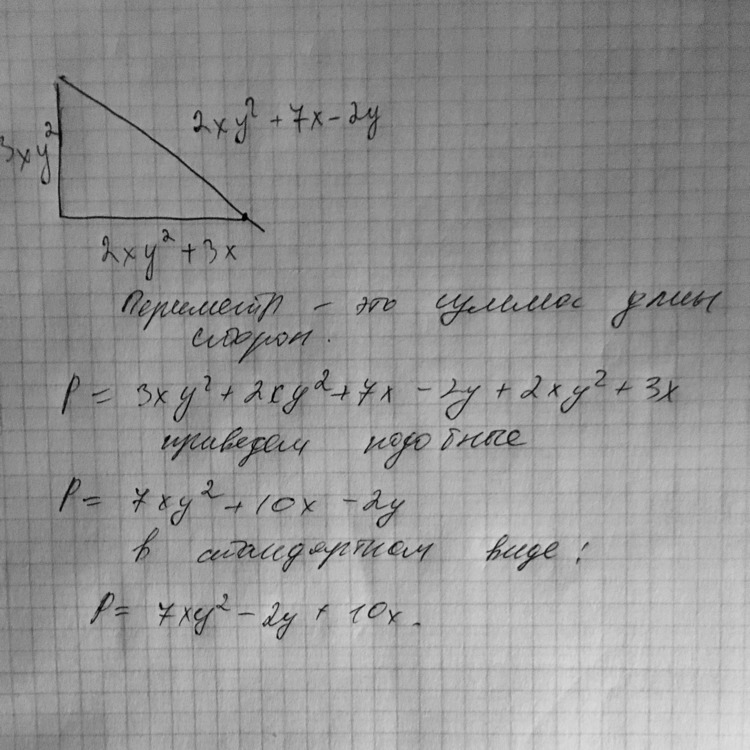 2xy² + 7x - 2y
3xy²
2xy² + 3x
Периметр - это сумма длины
сторон.
P = 3xy² + 2xy² + 7x - 2y + 2xy² + 3x
приведем подобные
P = 7xy² + 10x - 2y
в стандартном виде:
P = 7xy² - 2y + 10x.